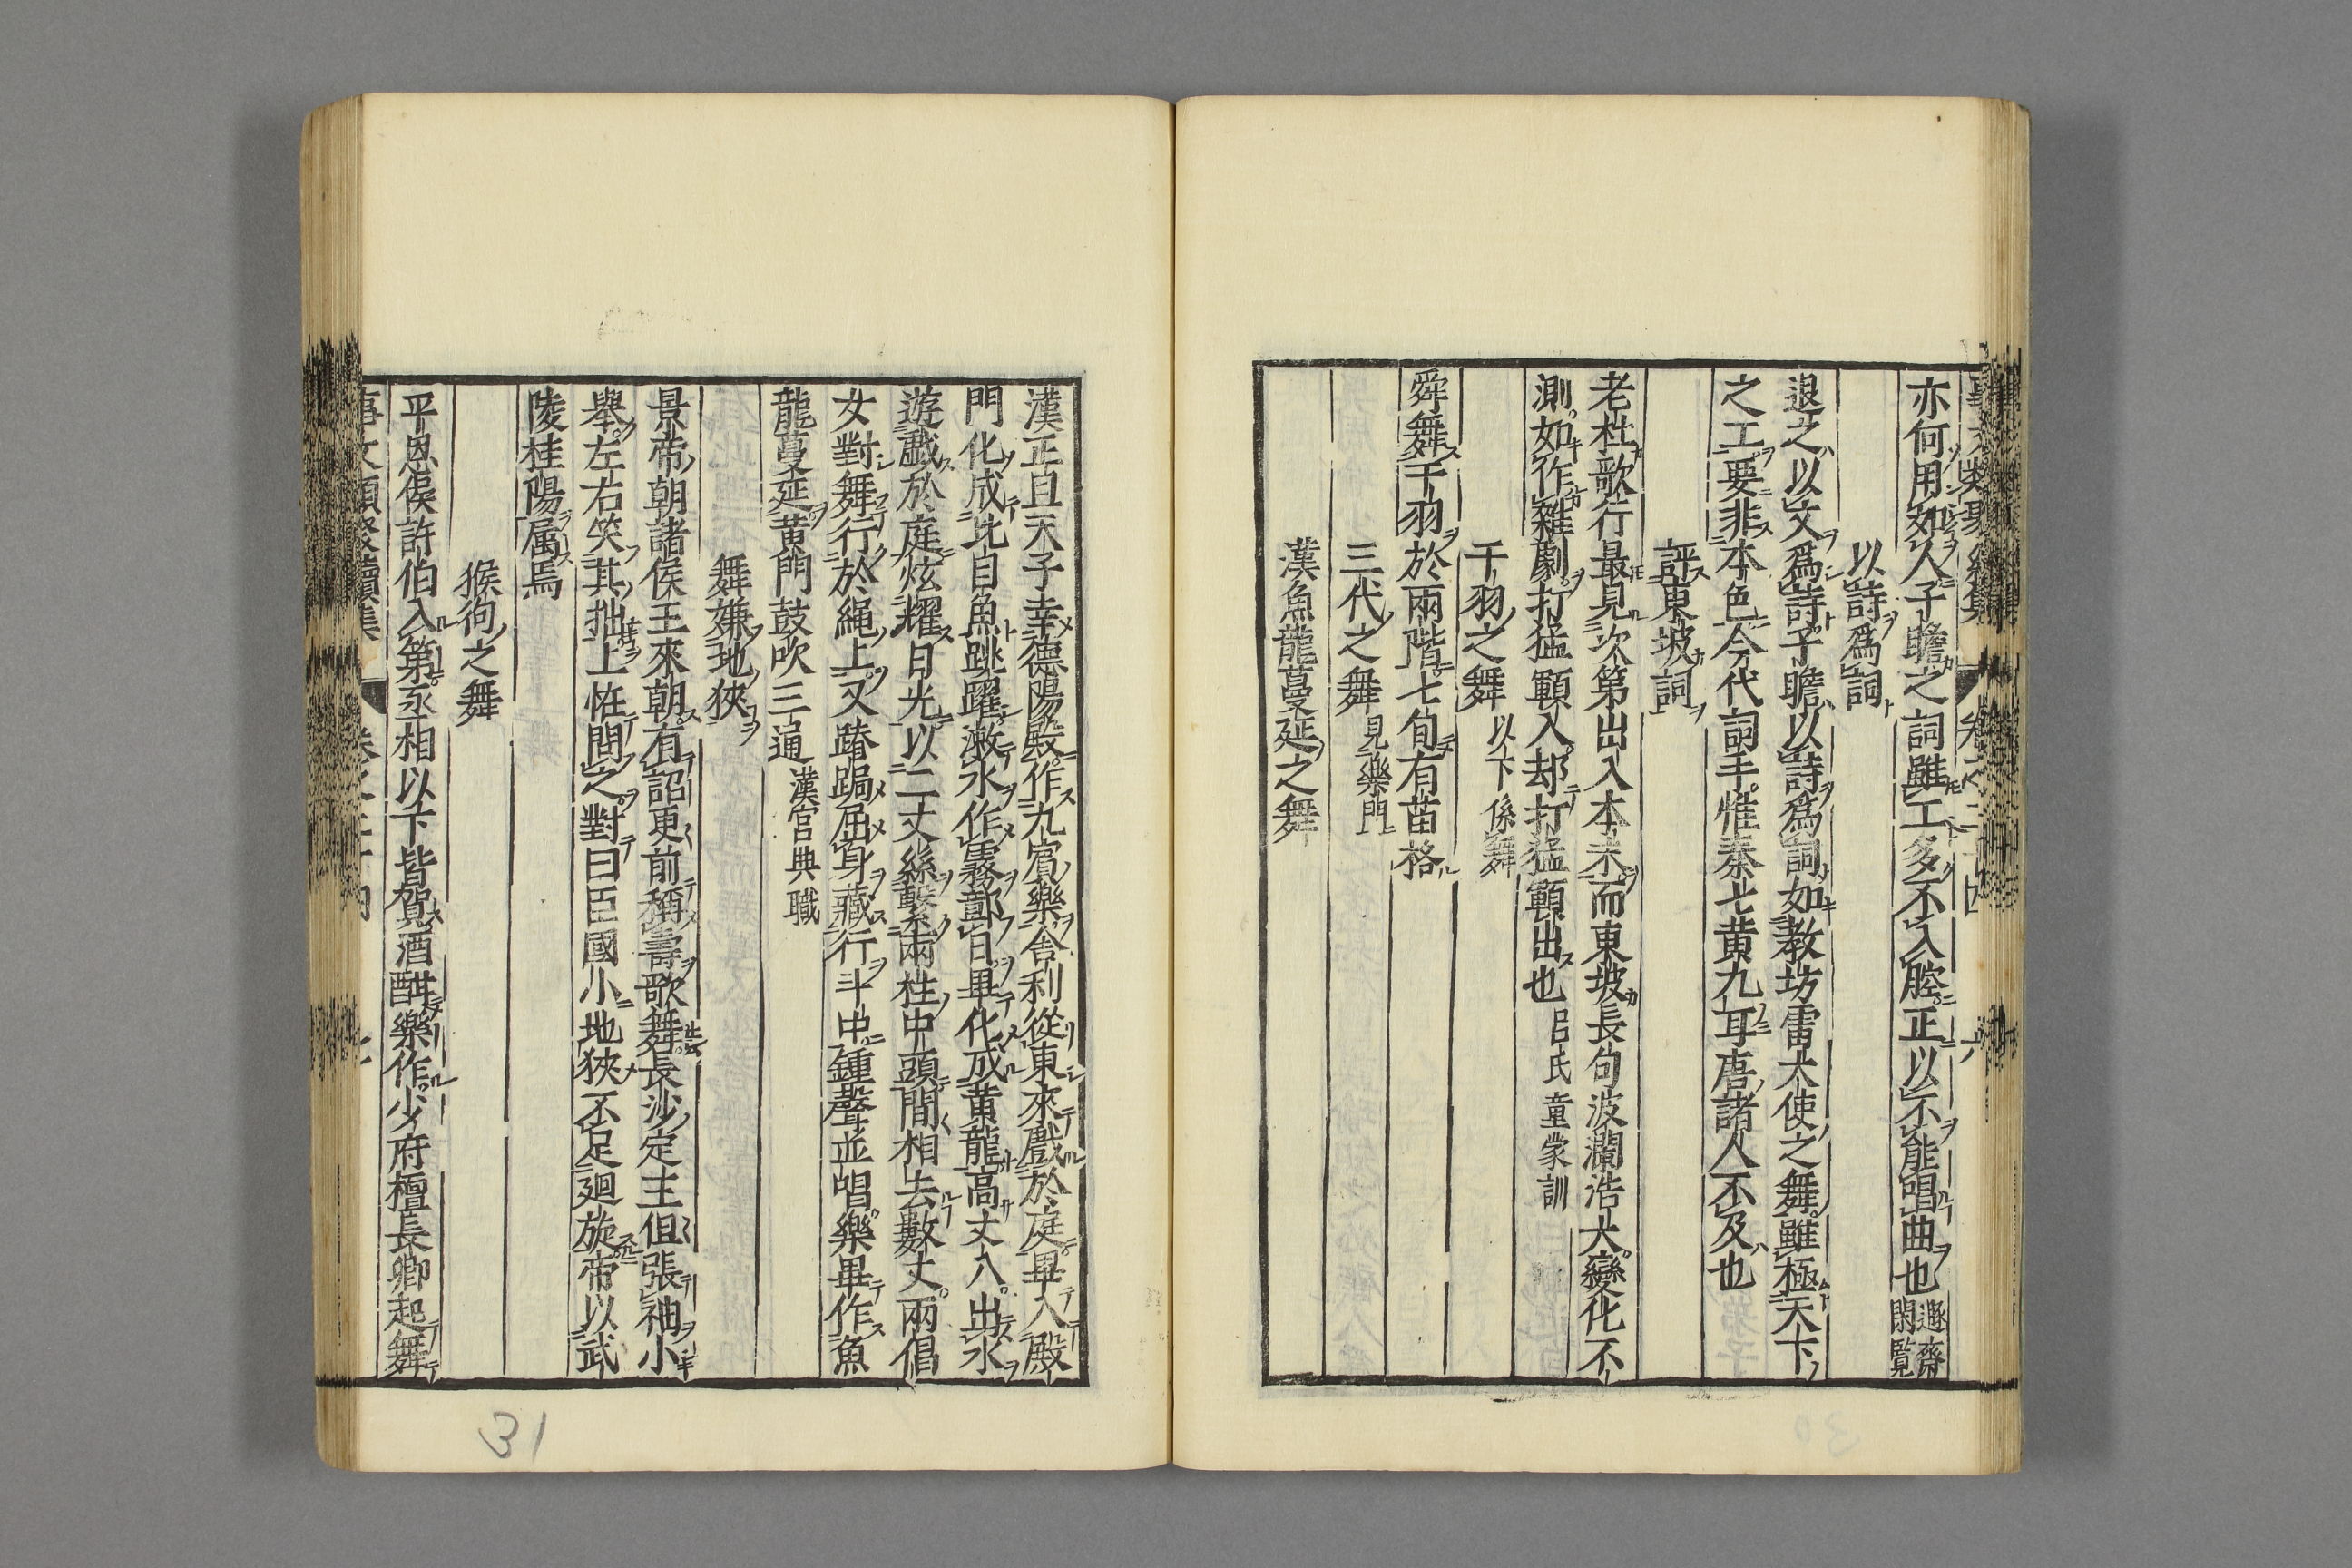 亦何用如人子瞻之詞雖工多不入腔正以不能唱曲也遯齋閑覧
以詩爲詞
退之以文爲詩子瞻以詩爲詞如教坊雷大使之舞雖極天下
之工要非本色今代詞手惟秦七黄九耳唐諸人不及也
評東坡詞
老杜歌行最見次第出入本末而東坡長句波瀾浩大變化不
測如作雜劇打猛顐入却打猛顐出也呂氏童蒙訓
干羽之舞以下係舞
舜舞干羽於兩階七旬有苗格
三代之舞見樂門
漢魚龍蔓延之舞
漢正旦天子幸德陽殿作九賓樂舎利從東來戲於庭畢入殿
門化成比目魚跳躍潄水作霧鄣日畢化成黄龍高丈八出水
遊戱於庭炫耀日光以二丈絲繫兩柱中頭間相去數丈兩倡
女對舞行於繩上又蹹跼屈身藏行斗中鍾聲並唱樂畢作魚
龍蔓延黄門鼓吹三通漢官典職
舞嫌地狹
景帝朝諸侯王來朝有詔更前稱壽歌舞長沙定王但張袖小
舉左右笑其拙上恠問之對曰臣國小地狹不足廻旋帝以武
陵桂陽属焉
猴狗之舞
平恩侯許伯入第丞相以下皆賀酒酣樂作少府檀長卿起舞
事文類聚續集
31